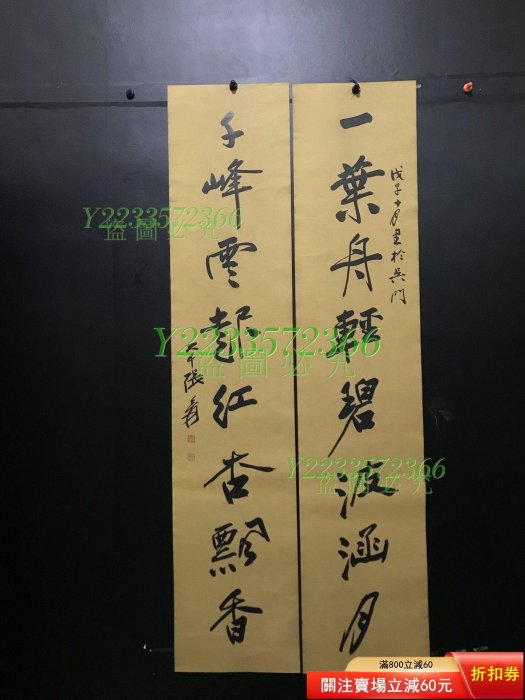 一葉舟輕碧波涵月
戊子十月書於吳門
千峰雲起紅杏飄香
大千張爰
Y2233572366
盜圖必究
Y2233572366
盜圖必究
Y2233572366
盜圖必究
滿800立減60
關注賣場立減60元
折扣券